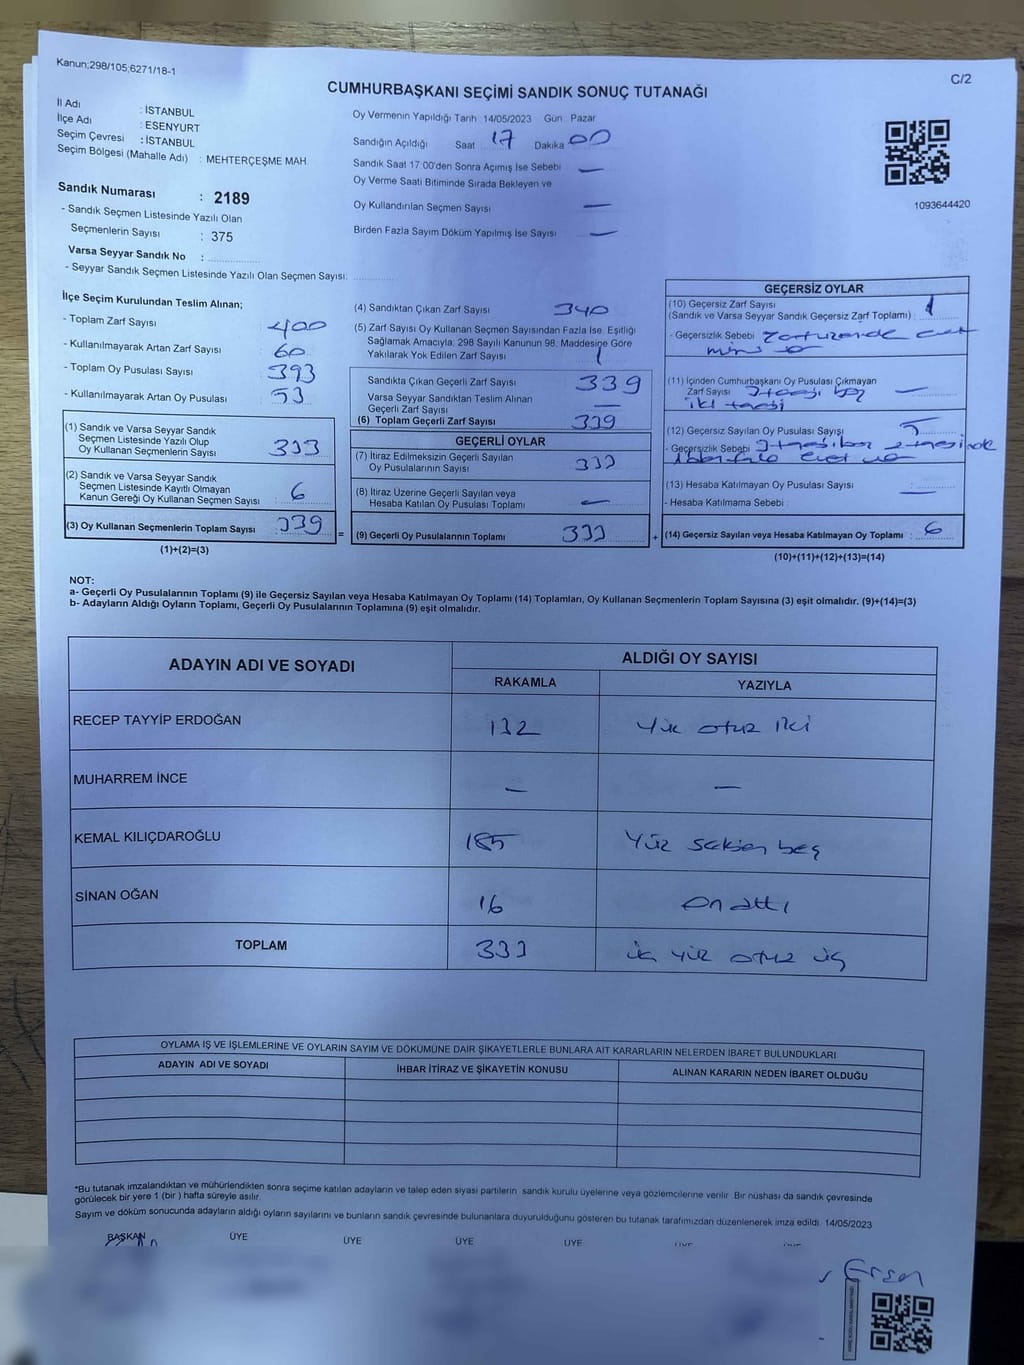 Kanun;298/105;6271/18-1
C/2
CUMHURBAŞKANI SEÇİMİ SANDIK SONUÇ TUTANAĞI
İl Adı : İSTANBUL
İlçe Adı : ESENYURT
Seçim Çevresi : İSTANBUL
Seçim Bölgesi (Mahalle Adı) : MEHTERÇEŞME MAH.
Sandık Numarası : 2189
- Sandık Seçmen Listesinde Yazılı Olan
Seçmenlerin Sayısı : 375
Varsa Seyyar Sandık No :
- Seyyar Sandık Seçmen Listesinde Yazılı Olan Seçmen Sayısı:
Oy Vermenin Yapıldığı Tarih 14/05/2023 Gün : Pazar
Sandığın Açıldığı Saat 17 Dakika 00
Sandık Saat 17:00'den Sonra Açımış İse Sebebi —
Oy Verme Saati Bitiminde Sırada Bekleyen ve
Oy Kullandırılan Seçmen Sayısı —
Birden Fazla Sayım Döküm Yapılmış İse Sayısı —
1093644420
İlçe Seçim Kurulundan Teslim Alınan;
- Toplam Zarf Sayısı : 400
- Kullanılmayarak Artan Zarf Sayısı : 60
- Toplam Oy Pusulası Sayısı : 393
- Kullanılmayarak Artan Oy Pusulası : 53
(1) Sandık ve Varsa Seyyar Sandık
Seçmen Listesinde Yazılı Olup
Oy Kullanan Seçmenlerin Sayısı : 333
(2) Sandık ve Varsa Seyyar Sandık
Seçmen Listesinde Kayıtlı Olmayan
Kanun Gereği Oy Kullanan Seçmen Sayısı : 6
(3) Oy Kullanan Seçmenlerin Toplam Sayısı : 339
(1)+(2)=(3)
=
(4) Sandıktan Çıkan Zarf Sayısı 340
(5) Zarf Sayısı Oy Kullanan Seçmen Sayısından Fazla İse, Eşitliği
Sağlamak Amacıyla; 298 Sayılı Kanunun 98. Maddesine Göre
Yakılarak Yok Edilen Zarf Sayısı 1
Sandıkta Çıkan Geçerli Zarf Sayısı 339
Varsa Seyyar Sandıktan Teslim Alınan
Geçerli Zarf Sayısı —
(6) Toplam Geçerli Zarf Sayısı 339
GEÇERLİ OYLAR
(7) İtiraz Edilmeksizin Geçerli Sayılan
Oy Pusulalarının Sayısı 333
(8) İtiraz Üzerine Geçerli Sayılan veya
Hesaba Katılan Oy Pusulası Toplamı —
(9) Geçerli Oy Pusulalarının Toplamı 333
+
GEÇERSİZ OYLAR
(10) Geçersiz Zarf Sayısı
(Sandık ve Varsa Seyyar Sandık Geçersiz Zarf Toplamı) : 1
- Geçersizlik Sebebi
(11) İçinden Cumhurbaşkanı Oy Pusulası Çıkmayan
Zarf Sayısı —
(12) Geçersiz Sayılan Oy Pusulası Sayısı 5
- Geçersizlik Sebebi
(13) Hesaba Katılmayan Oy Pusulası Sayısı —
- Hesaba Katılmama Sebebi :
(14) Geçersiz Sayılan veya Hesaba Katılmayan Oy Toplamı : 6
(10)+(11)+(12)+(13)=(14)
NOT:
a- Geçerli Oy Pusulalarının Toplamı (9) ile Geçersiz Sayılan veya Hesaba Katılmayan Oy Toplamı (14) Toplamları, Oy Kullanan Seçmenlerin Toplam Sayısına (3) eşit olmalıdır. (9)+(14)=(3)
b- Adayların Aldığı Oyların Toplamı, Geçerli Oy Pusulalarının Toplamına (9) eşit olmalıdır.
ADAYIN ADI VE SOYADI ALDIĞI OY SAYISI
RAKAMLA YAZIYLA
RECEP TAYYİP ERDOĞAN 132 Yüz otuz iki
MUHARREM İNCE — —
KEMAL KILIÇDAROĞLU 185 Yüz seksen beş
SİNAN OĞAN 16 on altı
TOPLAM 333 yüz otuz üç
OYLAMA İŞ VE İŞLEMLERİNE VE OYLARIN SAYIM VE DÖKÜMÜNE DAİR ŞİKAYETLERLE BUNLARA AİT KARARLARIN NELERDEN İBARET BULUNDUKLARI
ADAYIN ADI VE SOYADI İHBAR İTİRAZ VE ŞİKAYETİN KONUSU ALINAN KARARIN NEDEN İBARET OLDUĞU
*Bu tutanak imzalandıktan ve mühürlendikten sonra seçime katılan adayların ve talep eden siyasi partilerin sandık kurulu üyelerine veya gözlemcilerine verilir. Bir nüshası da sandık çevresinde
görülecek bir yere 1 (bir ) hafta süreyle asılır.
Sayım ve döküm sonucunda adayların aldığı oyların sayılarını ve bunların sandık çevresinde bulunanlara duyurulduğunu gösteren bu tutanak tarafımızdan düzenlenerek imza edildi. 14/05/2023
BAŞKAN ÜYE ÜYE ÜYE ÜYE
Ersen